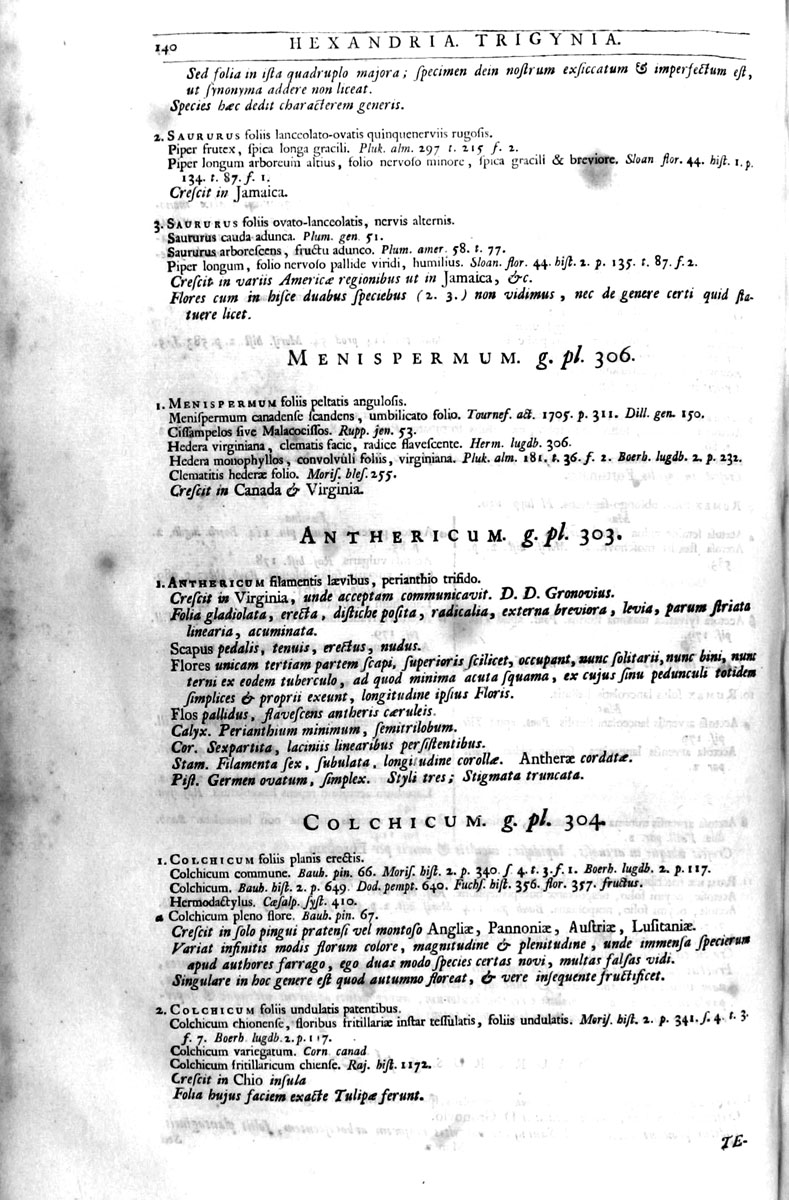 140 HEXANDRIA. TRIGYNIA.
Sed folia in iſta quadruplo majora; ſpecimen dein noſtrum exſiccatum & imperfectum eſt,
ut ſynonyma addere non liceat.
Species hæc dedit characterem generis.
2. SAURURUS foliis lanceolato-ovatis quinquenerviis rugoſis.
Piper frutex, ſpica longa gracili. Pluk. alm. 297 t. 215 f. 2.
Piper longum arboreum altius, folio nervoſo minore, ſpica gracili & breviore. Sloan flor. 44. hiſt. 1. p.
134. t. 87. f. 1.
Creſcit in Jamaica.
3. SAURURUS foliis ovato-lanceolatis, nervis alternis.
Saururus cauda adunca. Plum. gen. 51.
Saururus arboreſcens, fructu adunco. Plum. amer. 58. t. 77.
Piper longum, folio nervoſo pallide viridi, humilius. Sloan. flor. 44. hiſt. 2. p. 135. t. 87. f. 2.
Creſcit in variis Americæ regionibus ut in Jamaica, &c.
Flores cum in hiſce duabus ſpeciebus (2. 3.) non vidimus, nec de genere certi quid ſta-
tuere licet.
MENISPERMUM. g. pl. 306.
1. MENISPERMUM foliis peltatis anguloſis.
Meniſpermum canadenſe ſcandens, umbilicato folio. Tournef. act. 1705. p. 311. Dill. gen. 150.
Ciſſampelos ſive Malacociſſos. Rupp. jen. 53.
Hedera virginiana, clematis facie, radice flaveſcente. Herm. lugdb. 306.
Hedera monophyllos, convolvuli foliis, virginiana. Pluk. alm. 181. t. 36. f. 2. Boerh. lugdb. 2. p. 232.
Clematitis hederæ folio. Moriſ. bleſ. 255.
Creſcit in Canada & Virginia.
ANTHERICUM. g. pl. 303.
1. ANTHERICUM filamentis lævibus, perianthio trifido.
Creſcit in Virginia, unde acceptam communicavit. D. D. Gronovius.
Folia gladiolata, erecta, diſtiche poſita, radicalia, externa breviora, levia, parum ſtriata
linearia, acuminata.
Scapus pedalis, tenuis, erectus, nudus.
Flores unicam tertiam partem ſcapi, ſuperioris ſcilicet, occupant, nunc ſolitarii, nunc bini, nunc
terni ex eodem tuberculo, ad quod minima acuta ſquama, ex cujus ſinu pedunculi totidem
ſimplices & proprii exeunt, longitudine ipſius Floris.
Flos pallidus, flaveſcens antheris cæruleis.
Calyx. Perianthium minimum, ſemitrilobum.
Cor. Sexpartita, laciniis linearibus perſiſtentibus.
Stam. Filamenta ſex, ſubulata, longitudine corollæ. Antheræ cordatæ.
Piſt. Germen ovatum, ſimplex. Styli tres; Stigmata truncata.
COLCHICUM. g. pl. 304.
1. COLCHICUM foliis planis erectis.
Colchicum commune. Bauh. pin. 66. Moriſ. hiſt. 2. p. 340. ſ. 4. t. 3. f. 1. Boerh. lugdb. 2. p. 117.
Colchicum. Bauh. hiſt. 2. p. 649. Dod. pempt. 640. Fuchſ. hiſt. 356. flor. 357. fructus.
Hermodactylus. Cæſalp. ſyſt. 410.
Colchicum pleno flore. Bauh. pin. 67.
Creſcit in ſolo pingui pratenſi vel montoſo Angliæ, Pannoniæ, Auſtriæ, Luſitaniæ.
Variat infinitis modis florum colore, magnitudine & plenitudine, unde immenſa ſpecierum
apud authores farrago, ego duas modo ſpecies certas novi, multas falſas vidi.
Singulare in hoc genere eſt quod autumno floreat, & vere inſequente fructificet.
2. COLCHICUM foliis undulatis patentibus.
Colchicum chionenſe, floribus fritillariæ inſtar teſſulatis, foliis undulatis. Moriſ. hiſt. 2. p. 341. ſ. 4. t. 3.
f. 7. Boerh lugdb. 2. p. 117.
Colchicum variegatum. Corn canad
Colchicum fritillaricum chienſe. Raj. hiſt. 1172.
Creſcit in Chio inſula
Folia hujus faciem exacte Tulipæ ferunt.
TE-